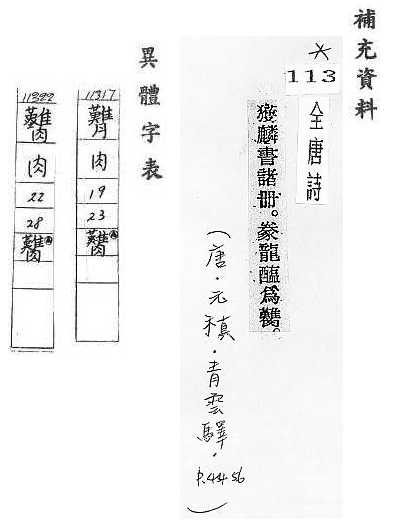 補充資料
＊
113
全唐詩
獲麟書諸冊。豢龍醢爲臡。
（唐．元稹．青雲驛．P.4456）
異體字表
11317
肉
19
23
11322
肉
22
28